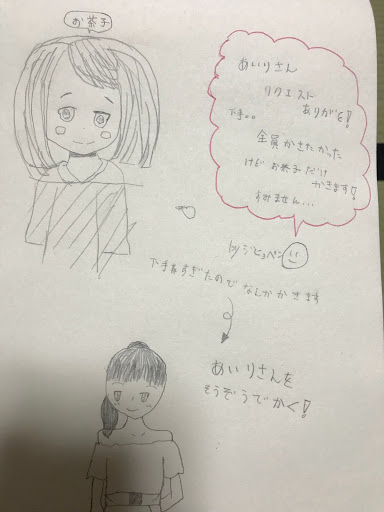 お茶子
あいりさん
リクエスト
ありがと!
下手。。
全員かきたかった
けど お茶子だけ
かきます!
すみません...
by ジヒョペン
下手すぎたので なんかかきます
あいりさんを
そうぞうでかく!